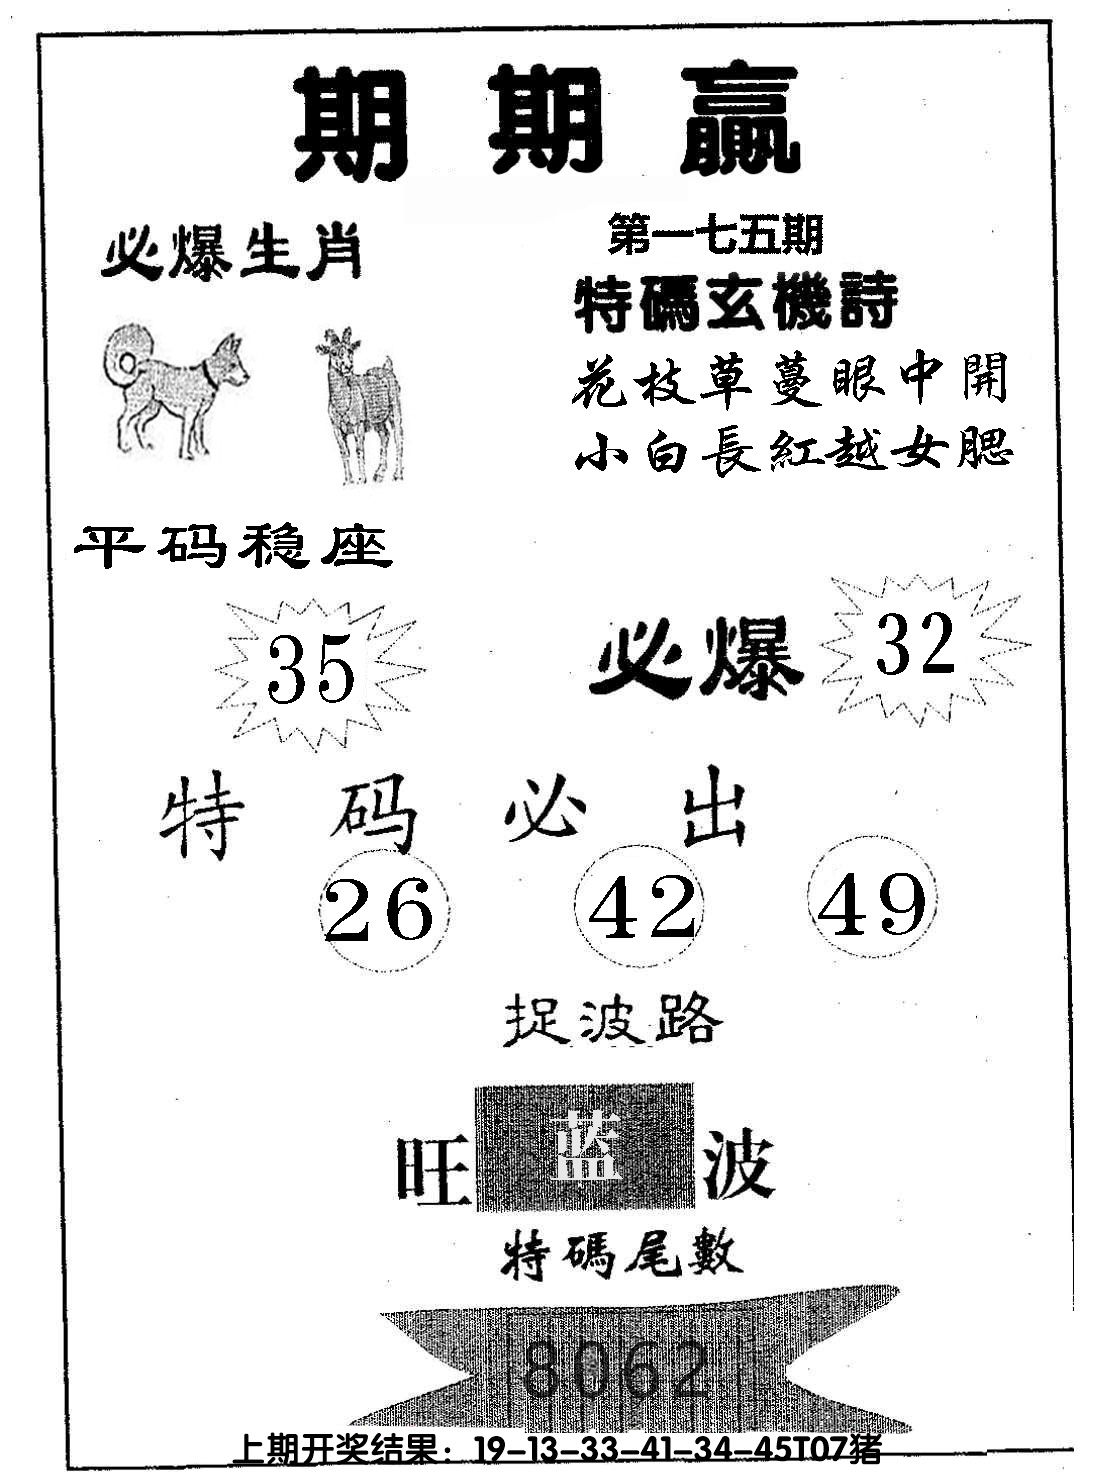 期期贏
必爆生肖
第一七五期
特碼玄機詩
花枝草蔓眼中開
小白長紅越女腮
平码稳座
35
必爆 32
特码必出
26 42 49
捉波路
旺 蓝 波
特碼尾數
8062
上期开奖结果：19-13-33-41-34-45T07猪